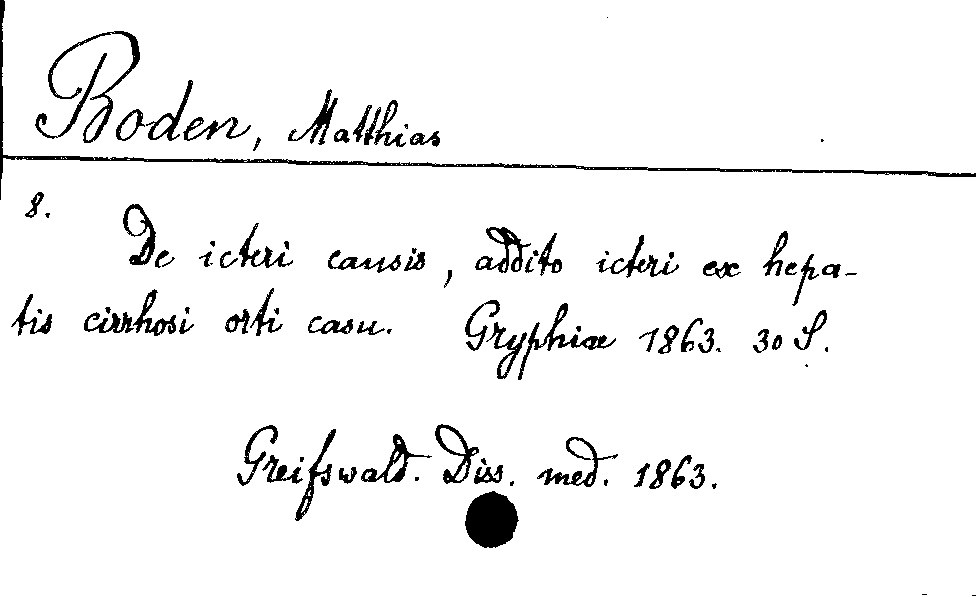 Boden, Matthias
8.
De icteri causis, addito icteri ex hepa-
tis cirrhosi orti casu. Gryphiae 1863. 30 S.
Greifswald. Diss. med. 1863.